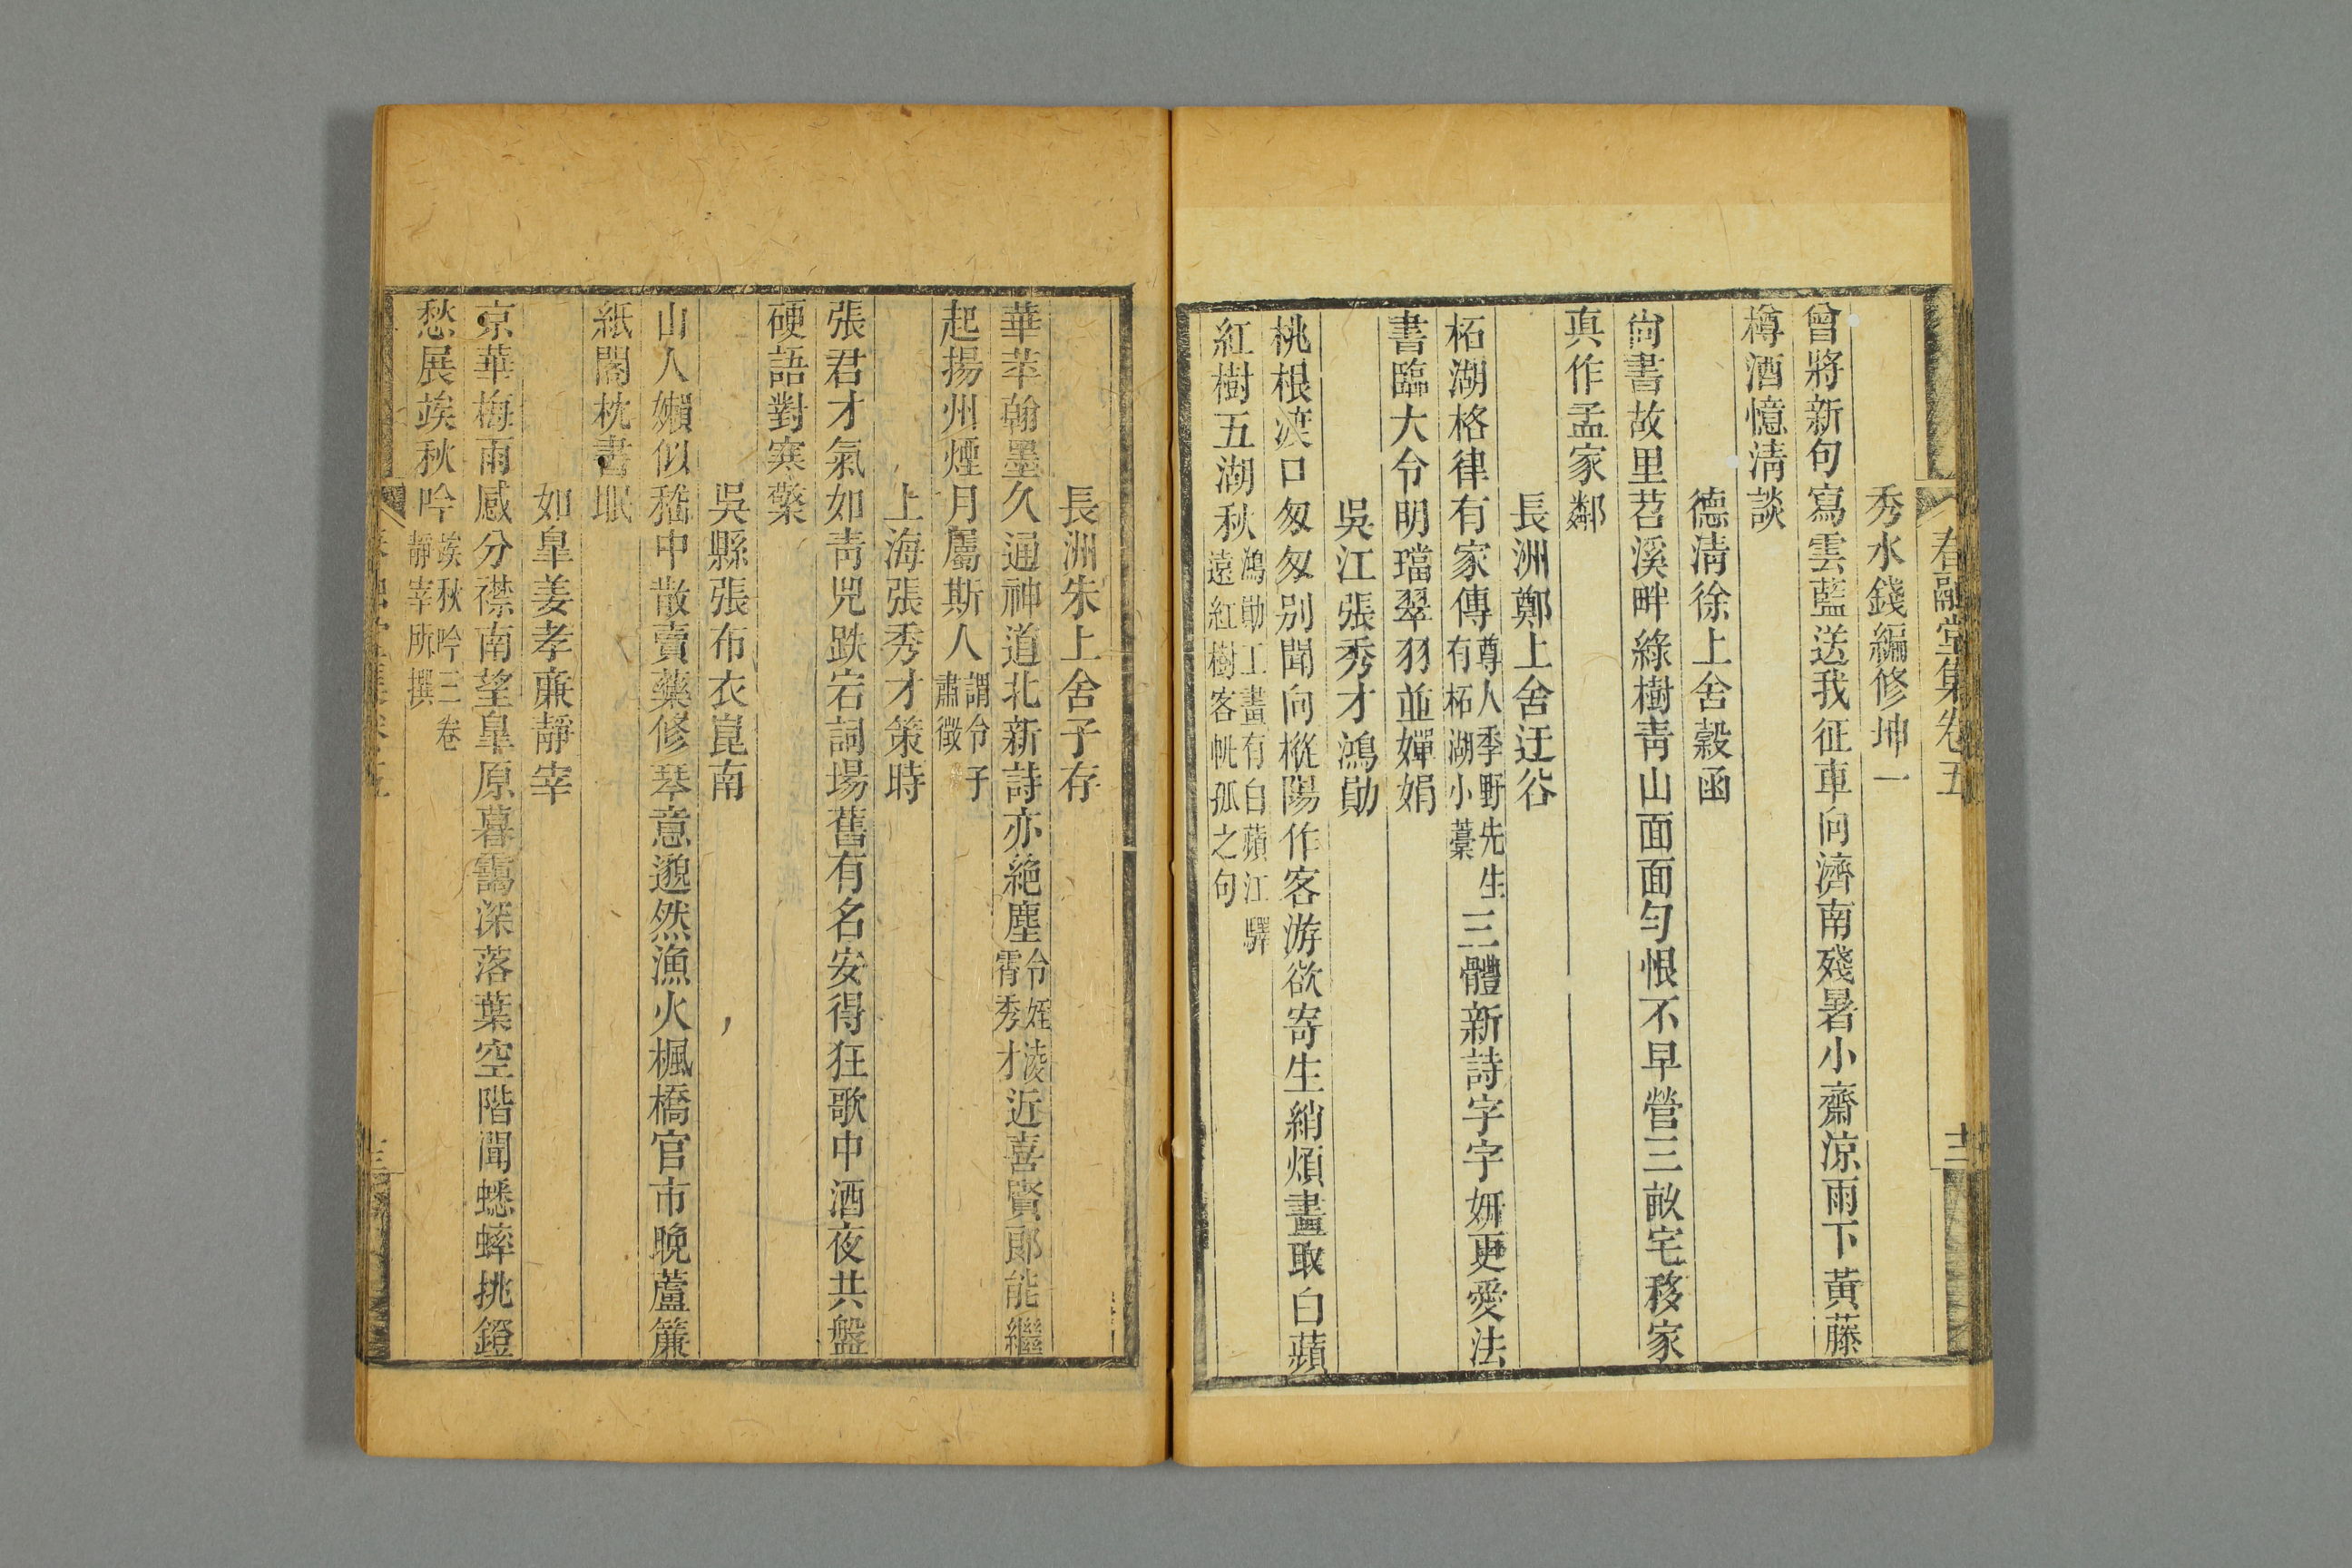 春融堂集卷五
十二
秀水錢編修坤一
曾將新句寫雲藍送我征車向濟南殘暑小齋涼雨下黃藤
樽酒憶淸談
德淸徐上舍穀函
尙書故里苕溪畔綠樹靑山面面勻恨不早營三畝宅移家
眞作孟家鄰
長洲鄭上舍迋谷
柘湖格律有家傳尊人季野先生有柘湖小藁三體新詩字字妍更愛法
書臨大令明璫翠羽並嬋娟
吳江張秀才鴻勛
桃根渡口匆匆别聞向樅陽作客游欲寄生綃煩畫取白蘋
紅樹五湖秋鴻勛工畫有白蘋江驛遠紅樹客帆孤之句
長洲朱上舍子存
華萃翰墨久通神道北新詩亦絶塵令姪淩霄秀才近喜賢郞能繼
起揚州煙月屬斯人謂令子肅徵
上海張秀才策時
張君才氣如靑兕跌宕詞場舊有名安得狂歌中酒夜共盤
硬語對寒檠
吳縣張布衣崑南
山人嬾似嵇中散賣藥修琴意邈然漁火楓橋官市晚蘆簾
紙閣枕書眠
如臯姜孝廉靜宰
京華梅雨感分襟南望臯原暮靄深落葉空階聞蟋蟀挑鐙
愁展竢秋吟竢秋吟三卷靜宰所撰